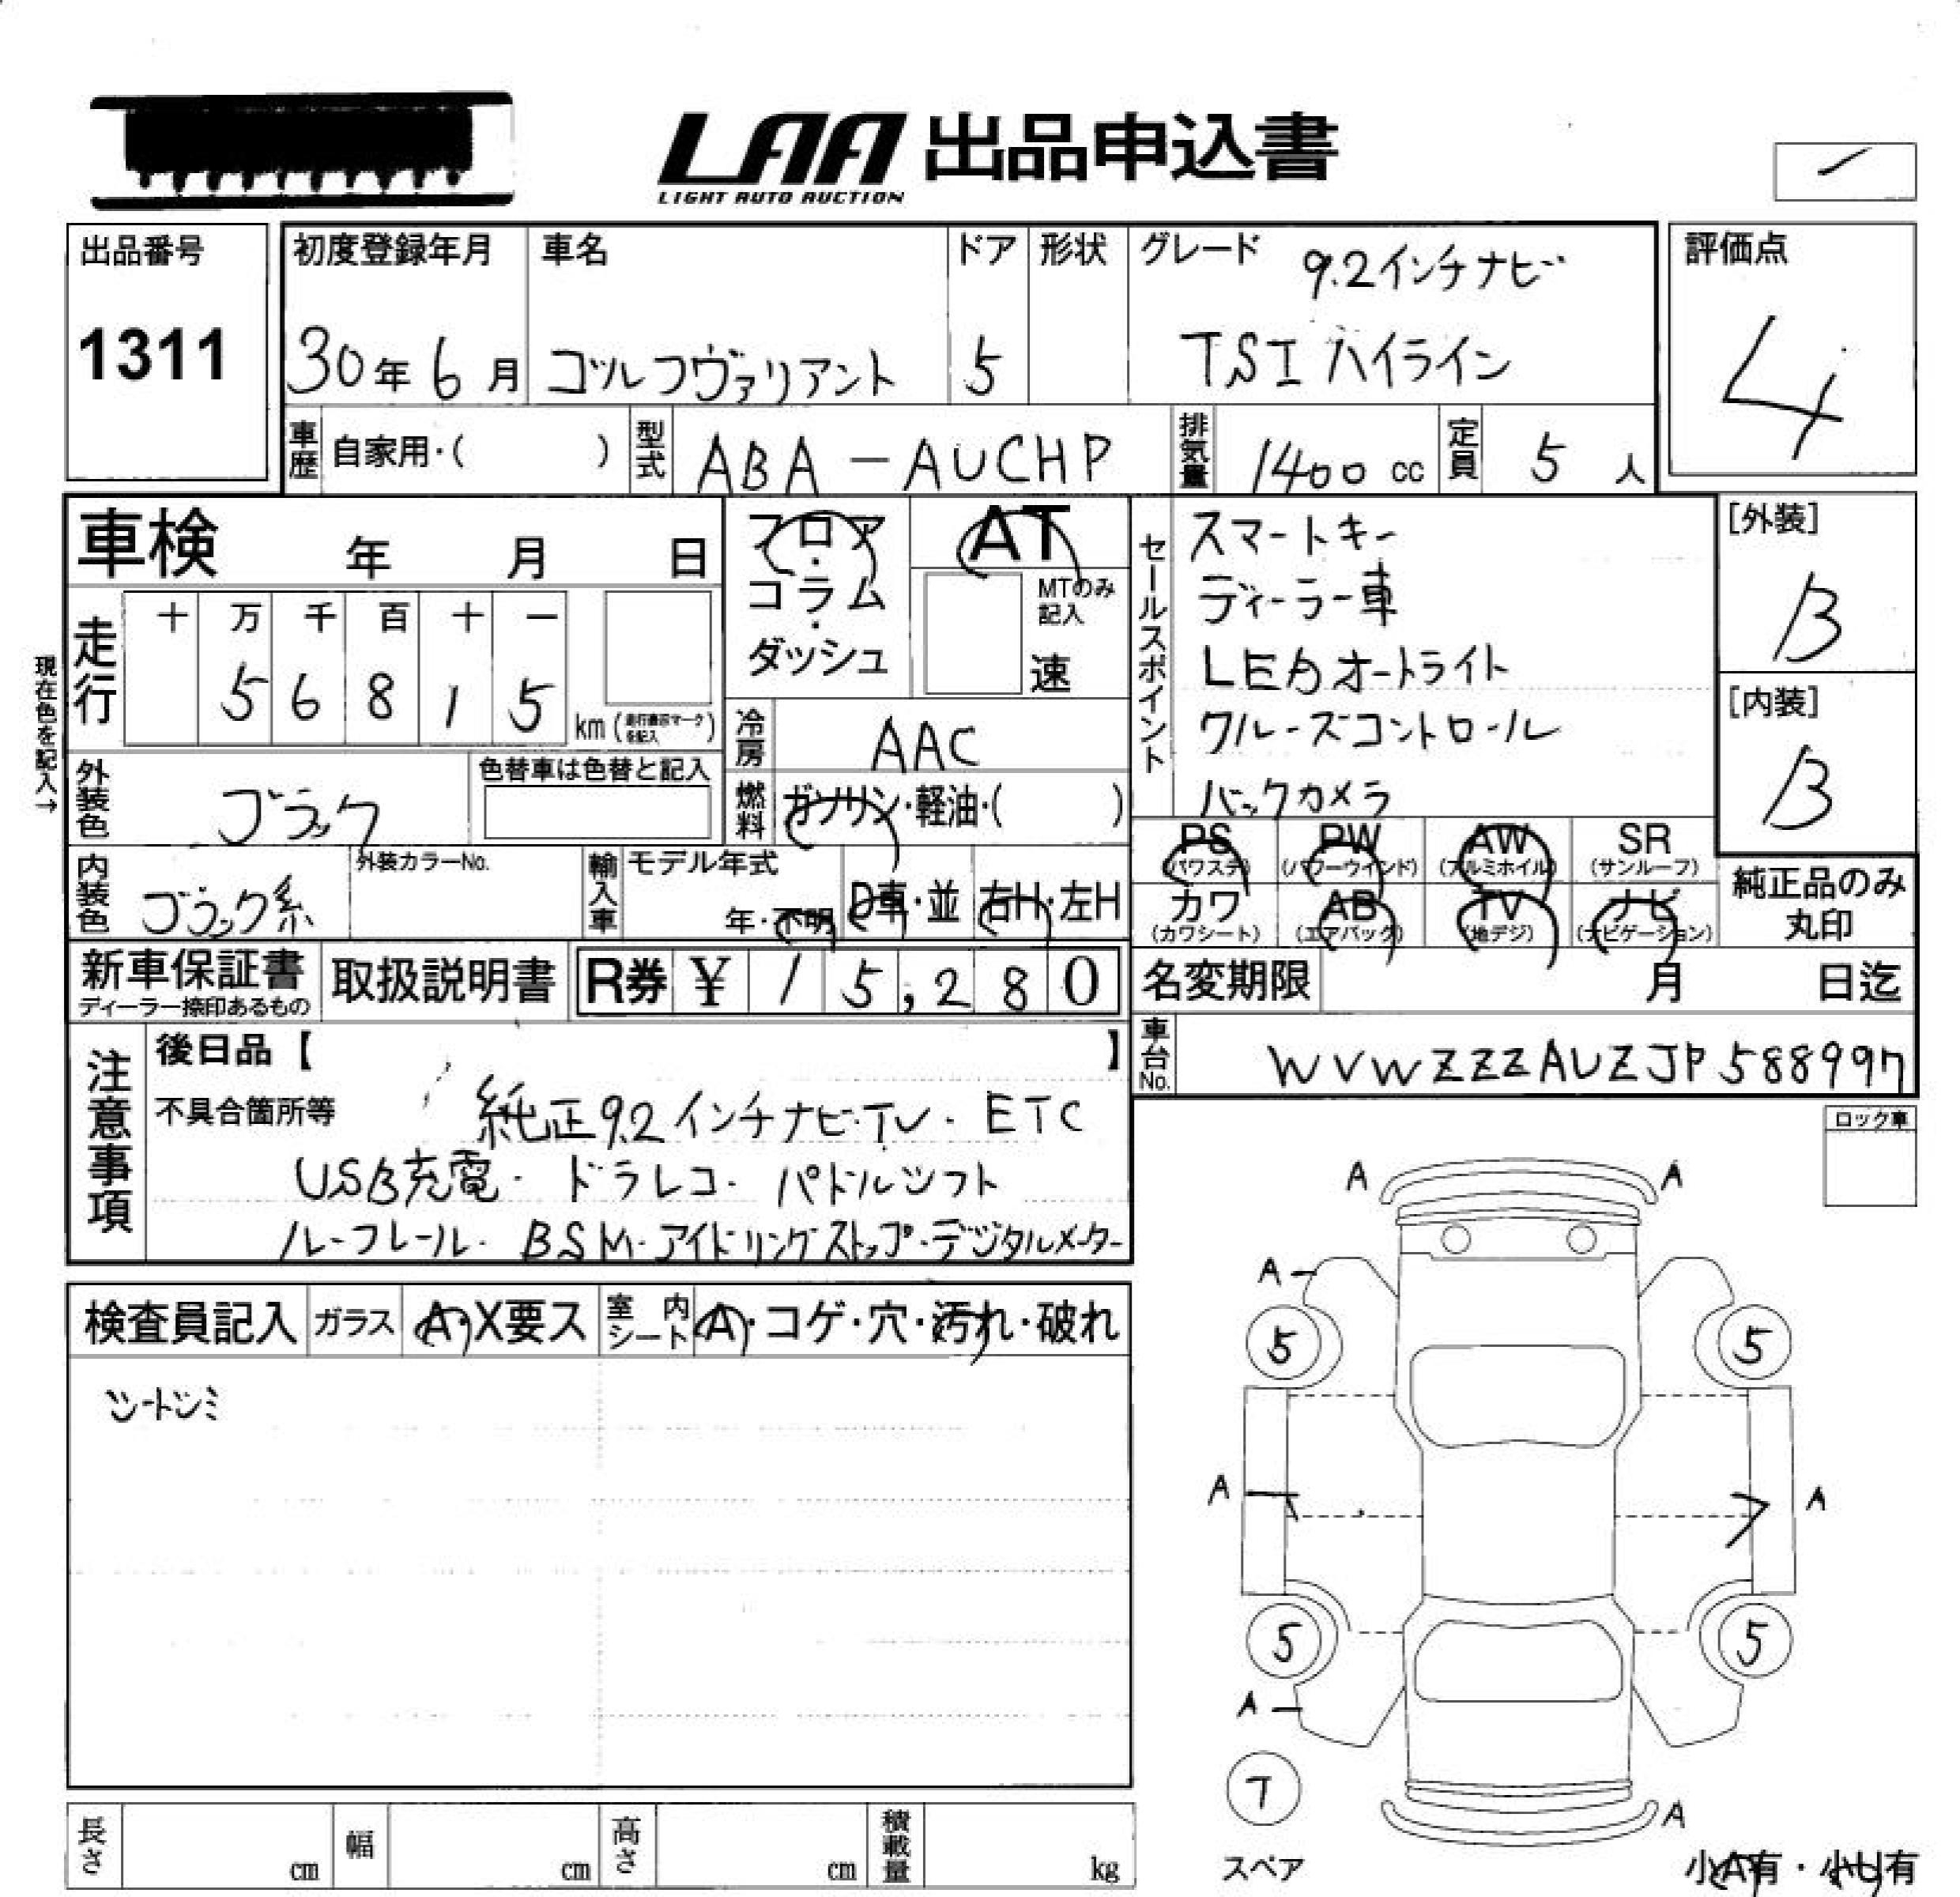 LAA 出品申込書
LIGHT AUTO AUCTION
出品番号
1311
初度登録年月
30年6月
車名
ゴルフヴァリアント
ドア
5
形状
グレード
9.2インチナビ
TSI ハイライン
評価点
4
車歴 自家用・( )
型式 ABA-AUCHP
排気量 1400 cc
定員 5 人
車検 年 月 日
フロア・コラム・ダッシュ
AT
MTのみ記入
速
セールスポイント
スマートキー
ディーラー車
LEDオートライト
クルーズコントロール
バックカメラ
[外装]
B
[内装]
B
現在色を記入→
走行
十 万 千 百 十 一
5 6 8 1 5
km (走行表示マークを記入)
冷房 AAC
燃料 ガソリン・軽油・( )
外装色 ブラック
色替車は色替と記入
内装色 ブラック系
外装カラーNo.
輸入車 モデル年式
年・不明
D車・並
右H・左H
PS (パワステ) PW (パワーウインド) AW (アルミホイル) SR (サンルーフ)
カワ (カワシート) AB (エアバック) TV (地デジ) ナビ (ナビゲーション)
純正品のみ丸印
新車保証書
ディーラー捺印あるもの
取扱説明書
R券 ¥ 15,280
名変期限 月 日迄
車台No. WVWZZZAUZJP588997
注意事項
後日品【 】
不具合箇所等 純正9.2インチナビ・TV・ETC
USB充電・ドラレコ・パドルシフト
ルーフレール・BSM・アイドリングストップ・デジタルメーター
ロック車
検査員記入 ガラス A・X要ス 室内シート A・コゲ・穴・汚れ・破れ
シートシミ
A A
A
5 5
A A
5 5
A
T
A
スペア
小A有・小U有
長さ cm 幅 cm 高さ cm 積載量 kg